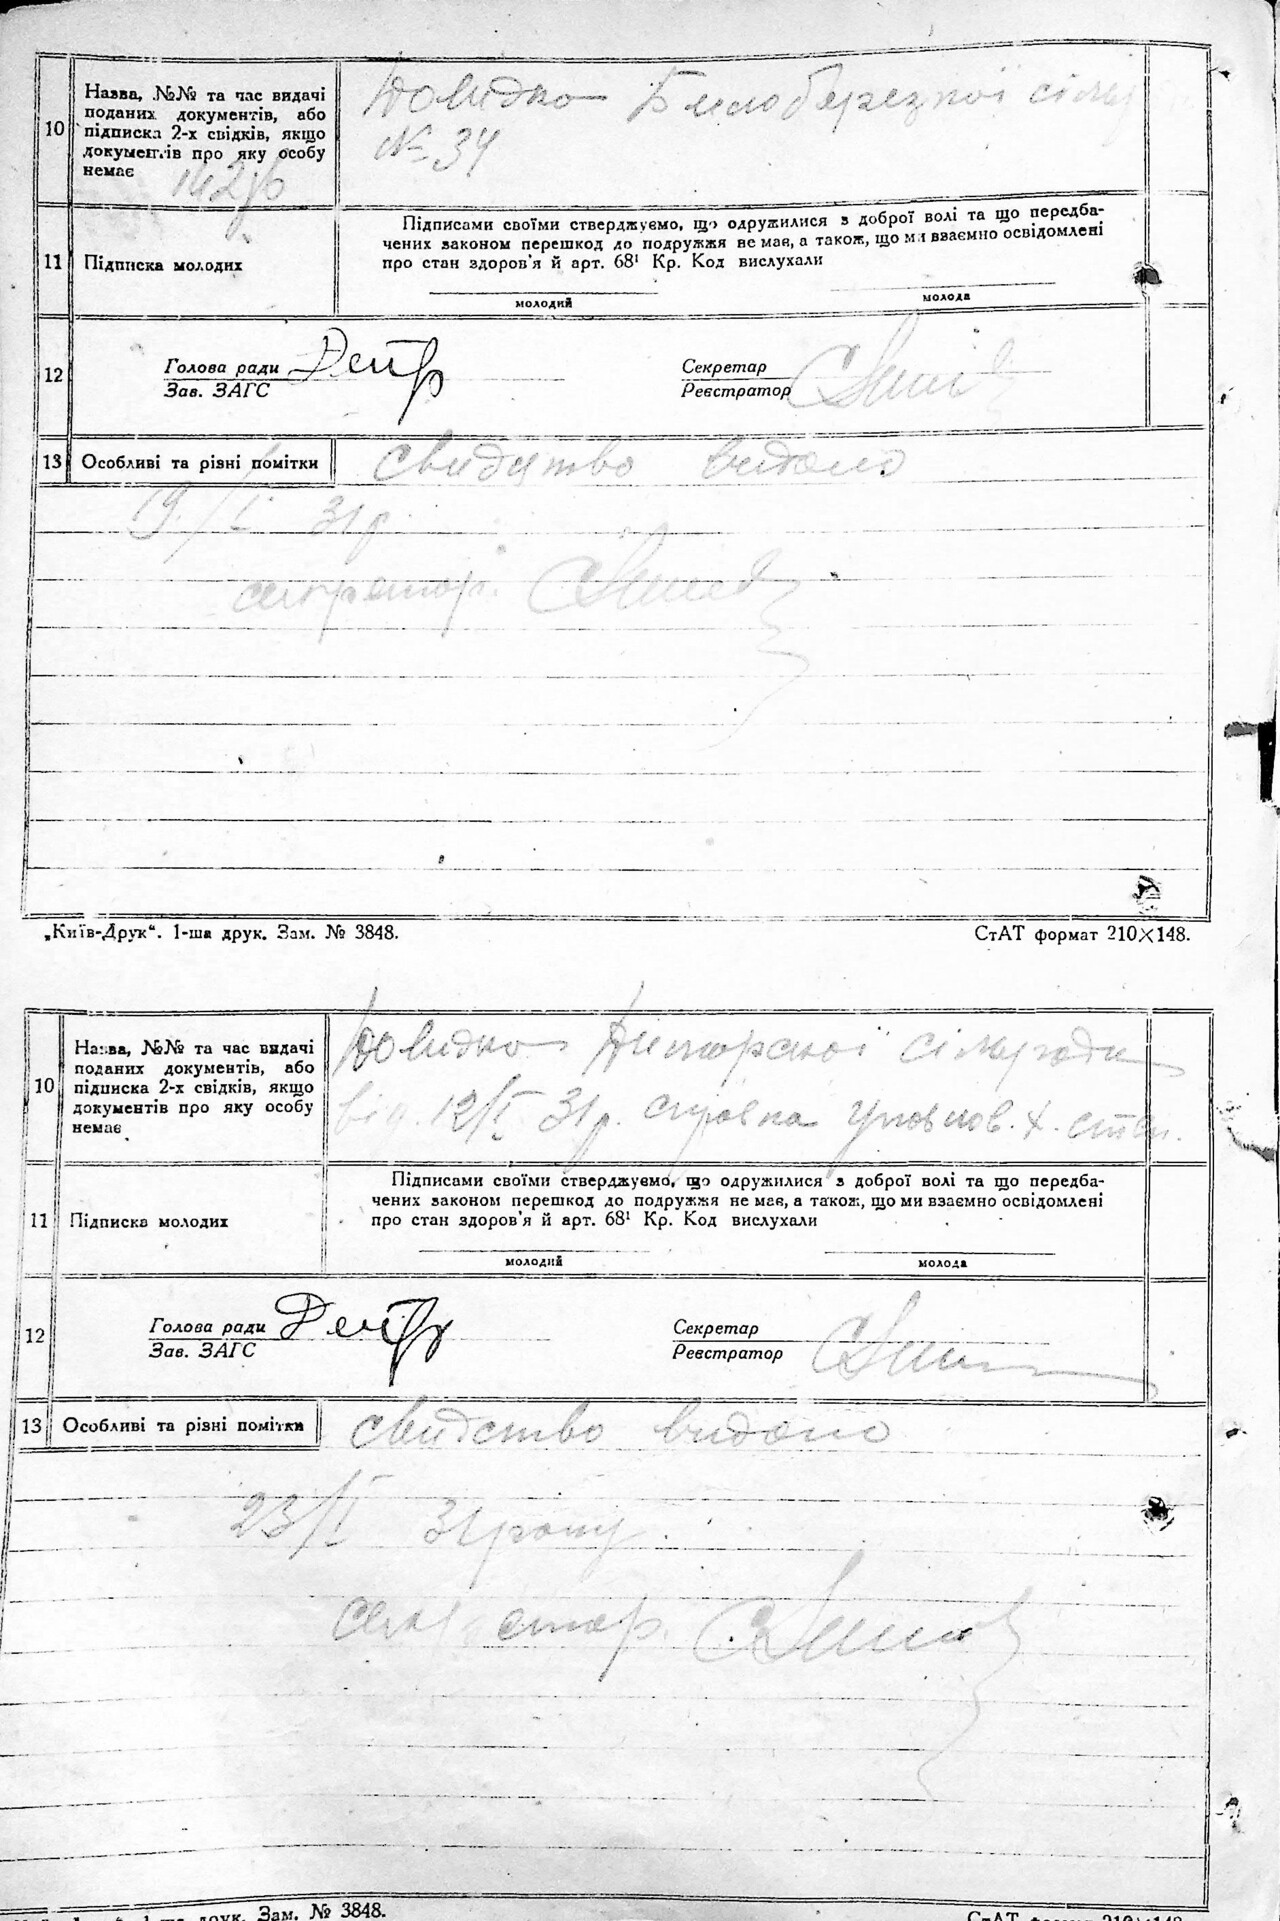 10
Назва, №№ та час видачі
поданих документів, або
підписка 2-х свідків, якщо
документів про яку особу
немає
Довидка Билоберезкої сіль
№ 34
142
11
Підписка молодих
Підписами своїми стверджуємо, що одружилися з доброї волі та що передба-
чених законом перешкод до подружжя не має, а також, що ми взаємно освідомлені
про стан здоров'я й арт. 68¹ Кр. Код вислухали
молодий
молода
12
Голова ради
Зав. ЗАГС
Секретар
Реєстратор
13
Особливі та різні помітки
свидцтво видано
19/I 31р.
секретар.
„Київ-Друк“. 1-ша друк. Зам. № 3848.
СтАТ формат 210×148.
10
Назва, №№ та час видачі
поданих документів, або
підписка 2-х свідків, якщо
документів про яку особу
немає
Довидка сільради
від. 12/I 31р. справка уповнов.
11
Підписка молодих
Підписами своїми стверджуємо, що одружилися з доброї волі та що передба-
чених законом перешкод до подружжя не має, а також, що ми взаємно освідомлені
про стан здоров'я й арт. 68¹ Кр. Код вислухали
молодий
молода
12
Голова ради
Зав. ЗАГС
Секретар
Реєстратор
13
Особливі та різні помітки
свидство видано
23/I 31 року
секретар.
1-ша друк. Зам. № 3848.
СтАТ формат 210×148.